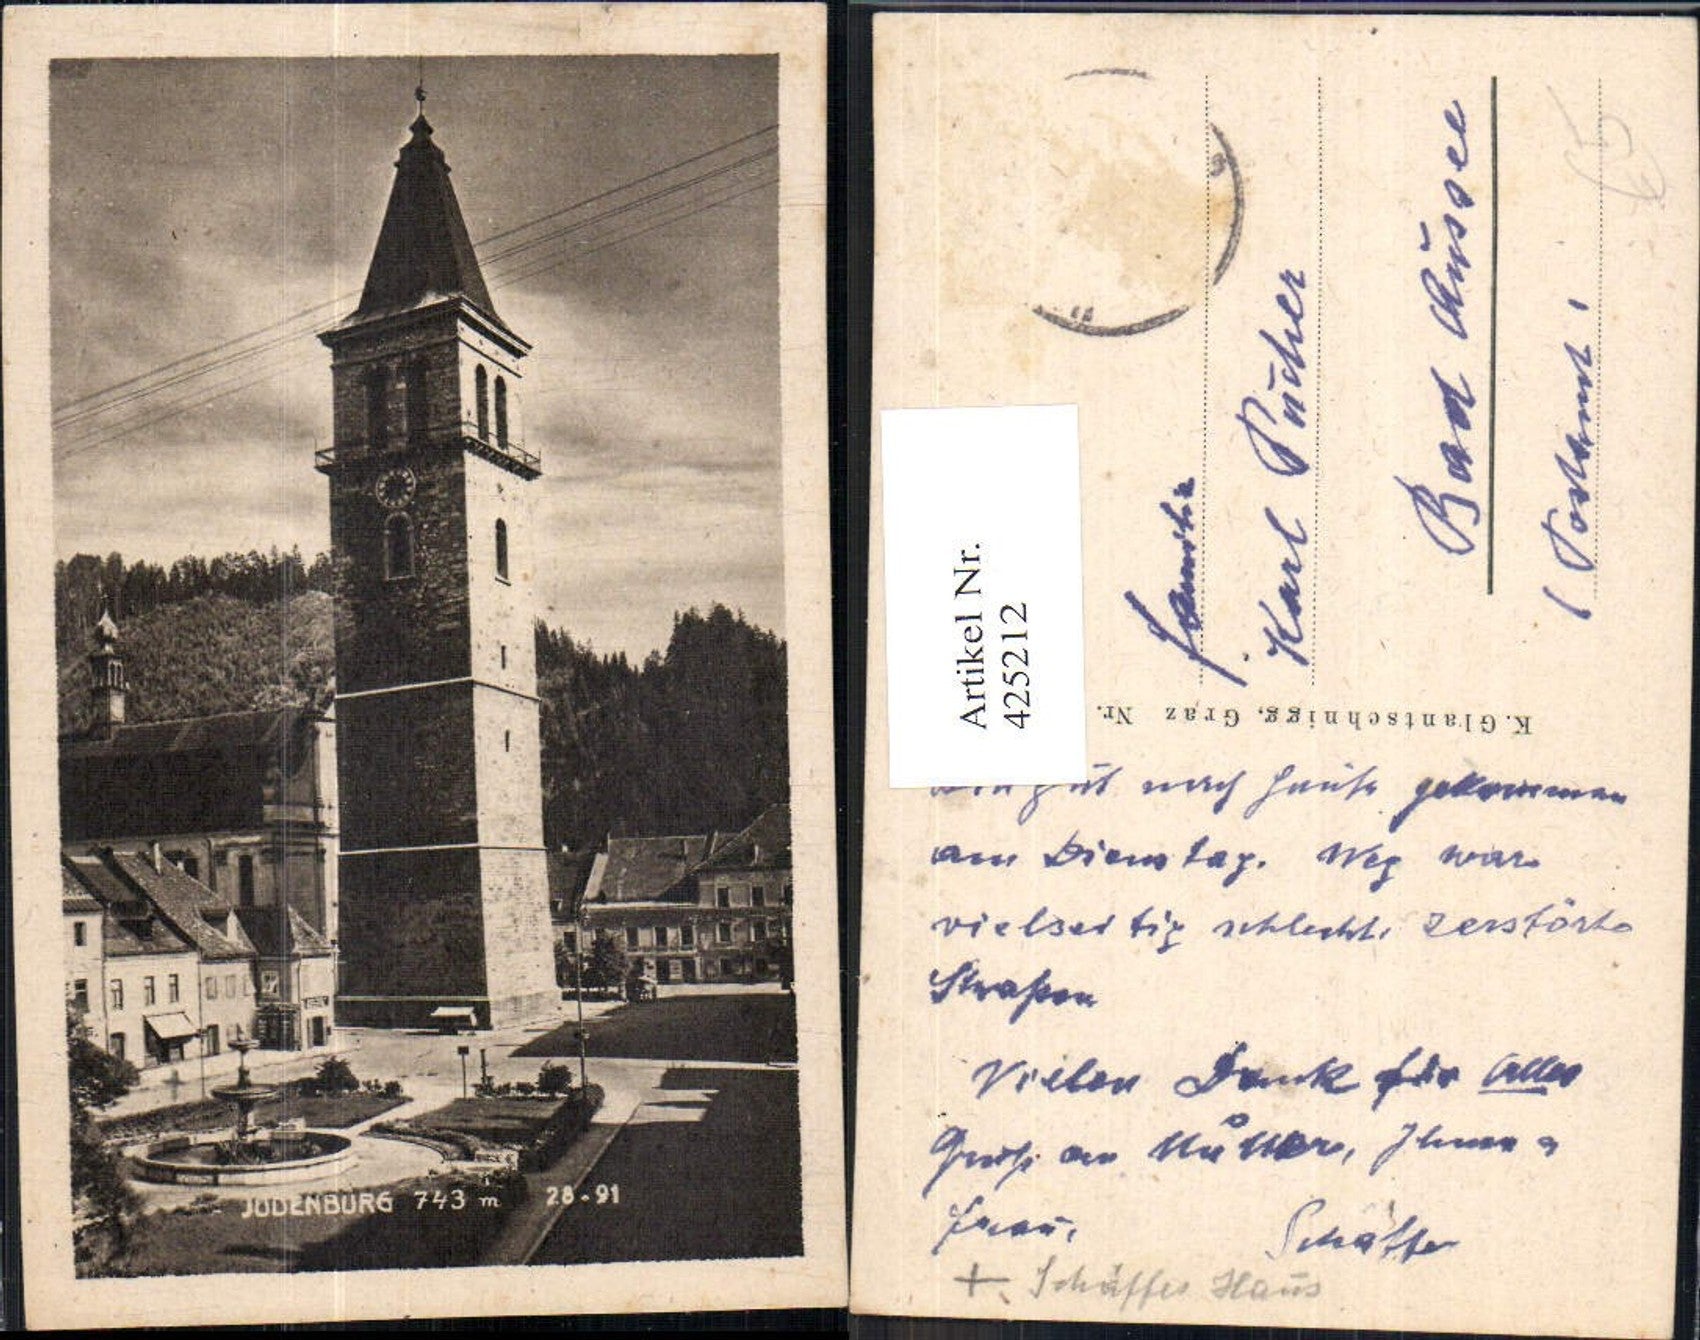 JUDENBURG 743 m 28-91
Artikel Nr.
4252212
Familie
Karl Pücher
Bad Aussee
( Postamt )
K. Glantschnigg, Graz Nr.
gut nach Hause gekommen
am Dienstag. Weg war
vielseitig schlecht, zerstörte
Straßen
Vielen Dank für Alles
Gruß an Mutter, Ihnen
Frau,
Schäffer
+ Schäffes Haus